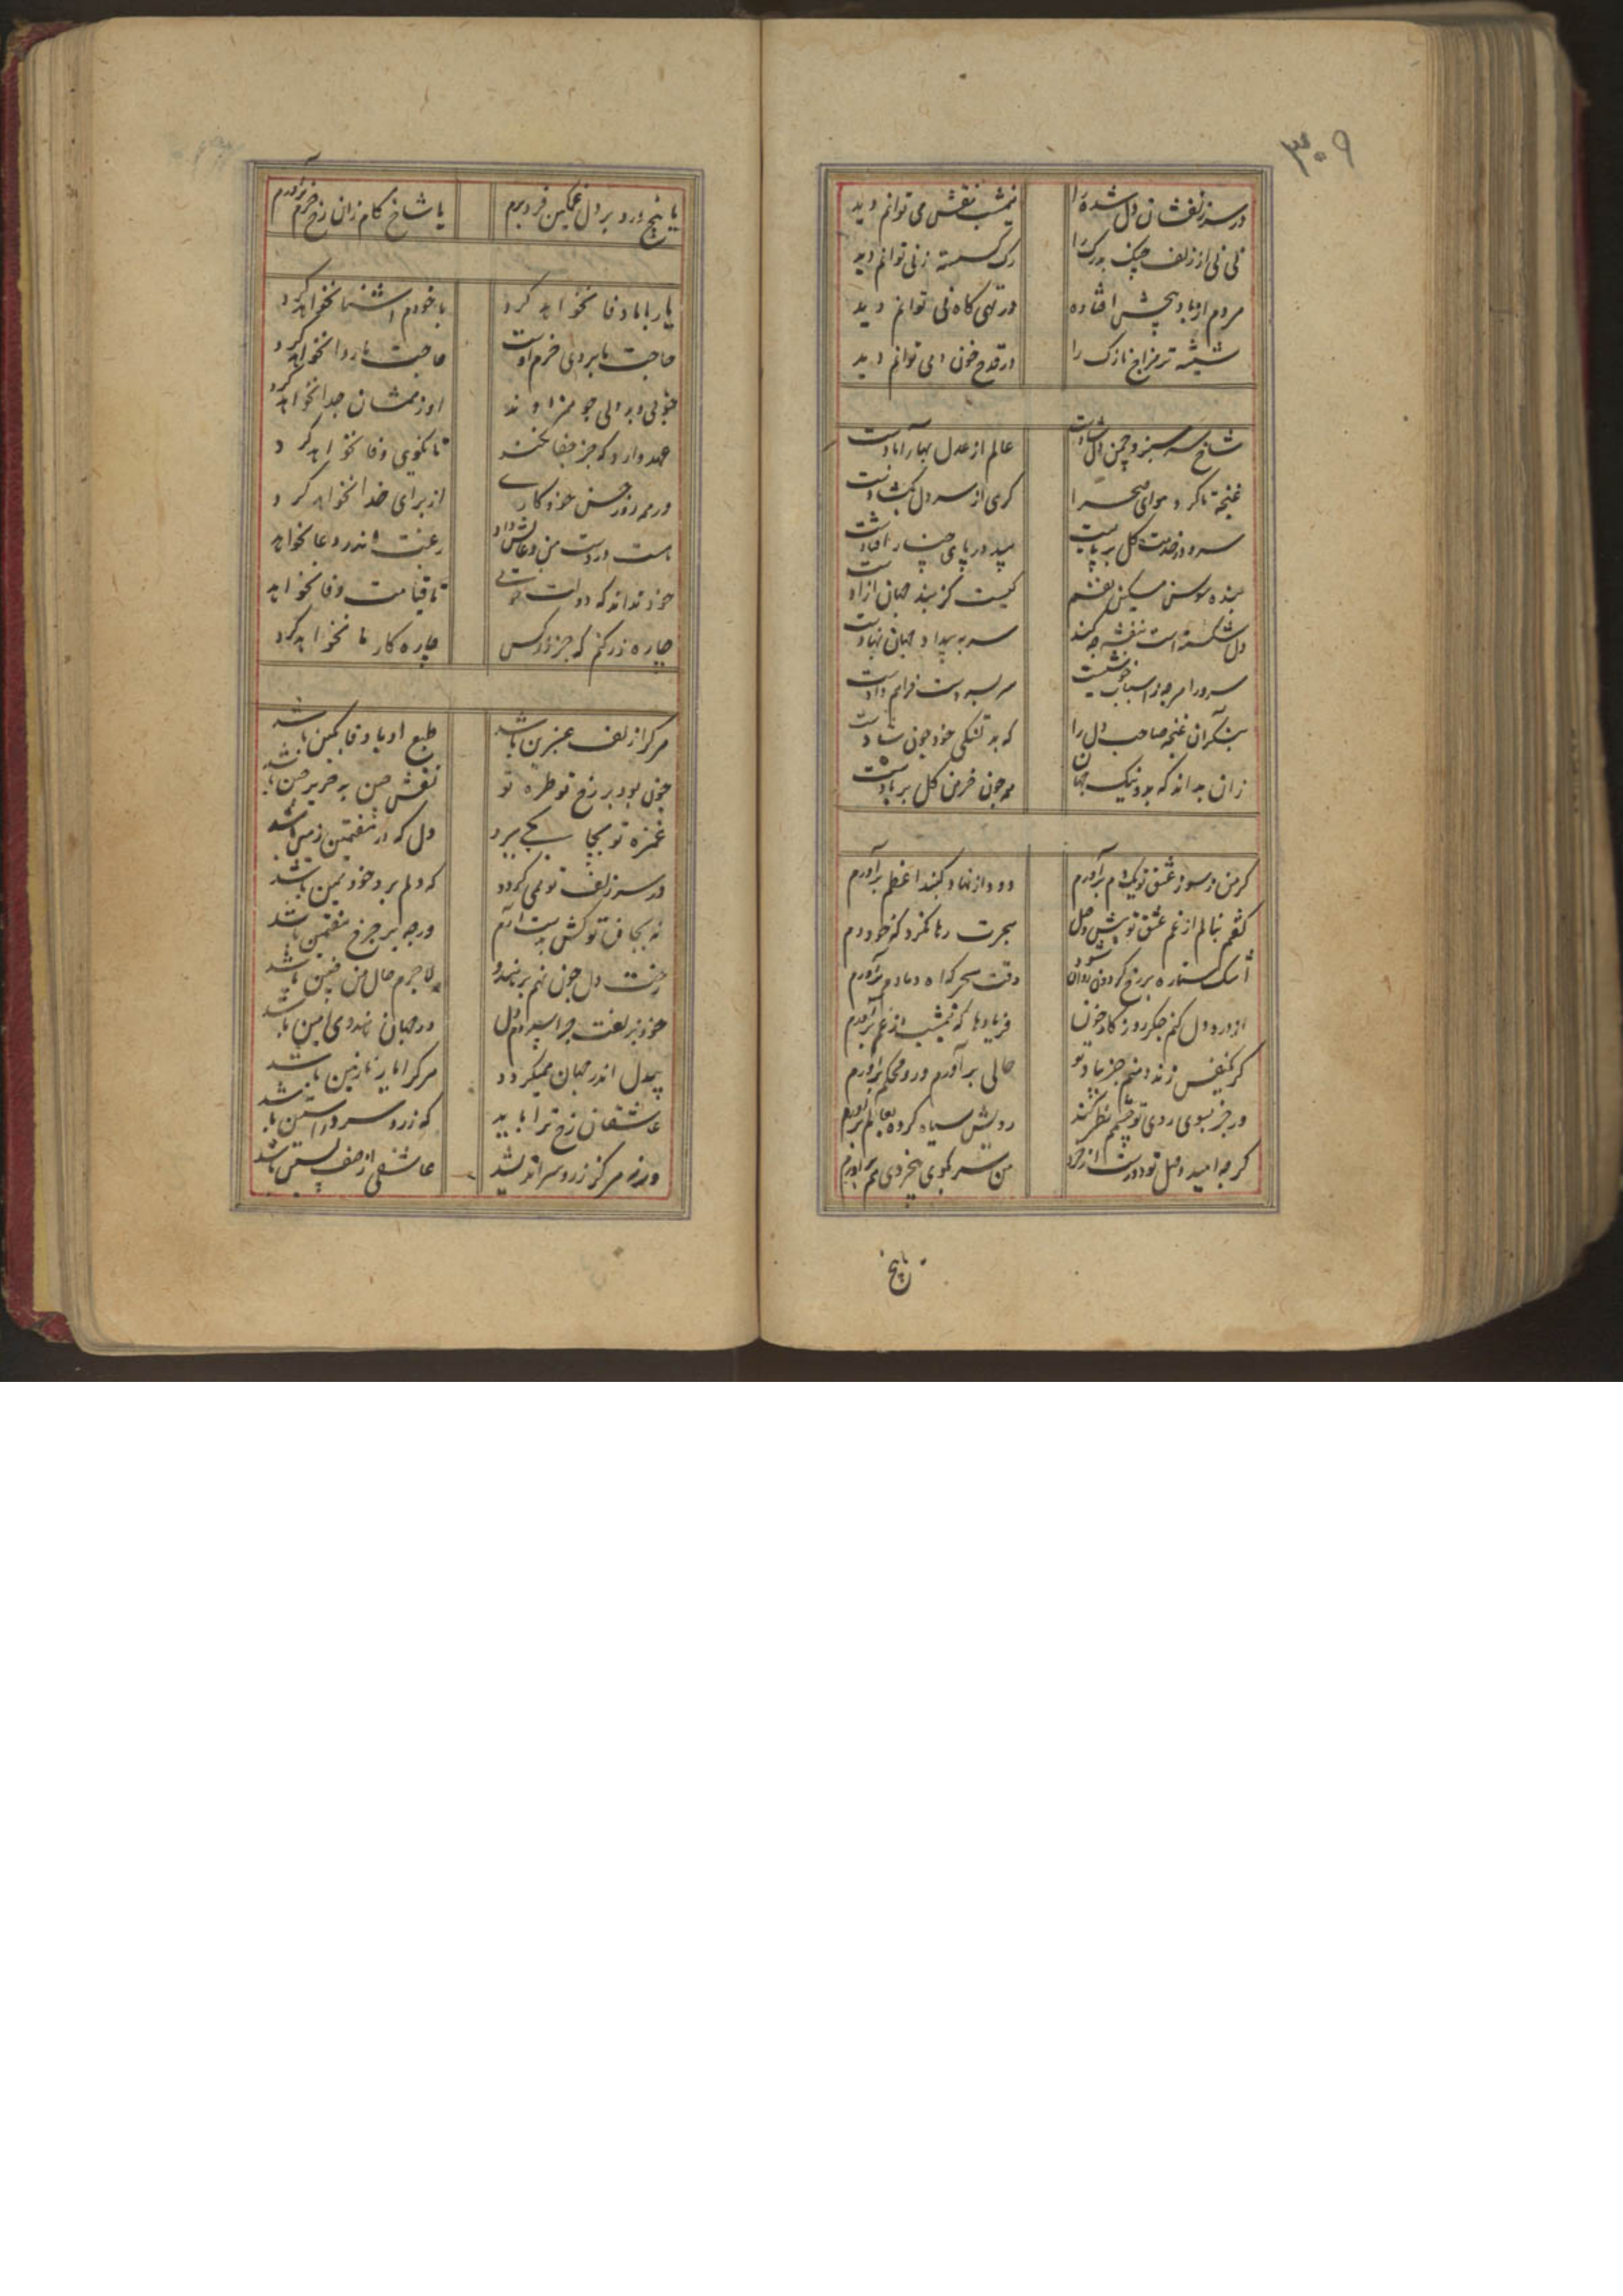 ۳۰۹
در سر زلفشان دل شده را نیمشب نقش می توانم دید
نی نی از زلف چنگ هر رک را رک کسسته ز نی توانم دید
مردم از باد بخش افتاده در تهی کاه نی توانم دید
شیشه تر مزاج نازک را در قدح خون می توانم دید
شاخ سرسبز و چمن دلشادست عالم از عدل بهار آبادست
غنچه تا کرد هوای صحرا کرهی از سر دل بکشادست
سرو در خدمت کل بر پایست بید در پای چنار افتادست
بنده سوسن مسکین نفسم کیست کز بند جهان ازادست
دل شکسته است بنفشه چه کند سر به بیداد جهان بنهادست
سرو را هر چه ز اسباب خوشیست سر بسر دست فراهم دادست
بنکر آن غنچه صاحب دل را که به تنکی خود چون شادست
زان بداند که بد و نیک جهان همه چون خرمن کل بر بادست
کر من ز سوز عشق تو یکدم برآورم دود از نهاد کنبد اعظم برآورم
کفتم بنالم از غم عشق تو پیش وصل هجرت رها نکرد که خود دم
اشک ستاره بر رخ کردون روان شود وقت سحر که اه دمادم برآورم
از درد دل کنم جکر روز کار خون فریادها که نیمشب از غم برآورم
کر یکنفس زنده دلم جز بیاد تو حالی برآورم در و محکم برآورم
ور جز بسوی روی تو چشمم نظر کند رویش سیاه کرده بعالم برآورم
کر چه امید وصل تو دورست از خرد من سر بکوی بیخردی هم برآورم
تا بیخ
یا بیخ درد بر دل غمکین فرو برم یا شاخ کام زان رخ خرم برآورم
یار با ما وفا نخواهد کرد با خودم اشنا نخواهد کرد
حاجت ما بروی خرم اوست حاجت ما روا نخواهد کرد
خوبی و بد دلی چو همزادند او زهمشان جدا نخواهد کرد
عهد دارد که جز جفا نکند تا نکویی وفا نخواهد کرد
در همه روز حسن خود کاری از برای خدا نخواهد کرد
هست در دست من دعا رغبت اندر دعا نخواهد
خود نداند که دولت تا قیامت وفا نخواهد
چاره زر کنم که جز زر کس چاره کار ما نخواهد کرد
هر کرا زلف عنبرین باشد طبع او با وفا بکین باشد
چون بود بر رخ تو طره تو نقش چین به حریر چین باشد
غمزه تو بجا یکی ببرد دل که در هفتمین زمین باشد
در سر زلف تو نمی کردد که دلم برد خود همین باشد
نه بجا ق توکش بدست آرم ورچه بر چرخ هفتمین باشد
رخت دل چون نهم بر هندو لاجرم حال من چنین باشد
خود بزلفت چرا سپردم دل در جهان هندوی امین باشد
بیدل اندر جهان نمیکردد هر کرا یار نازنین باشد
عاشقان رخ ترا باید که زر و سر در استین باشد
ورنه هر کز زر و سر اندیشد عاشقی از صف پسین باشد